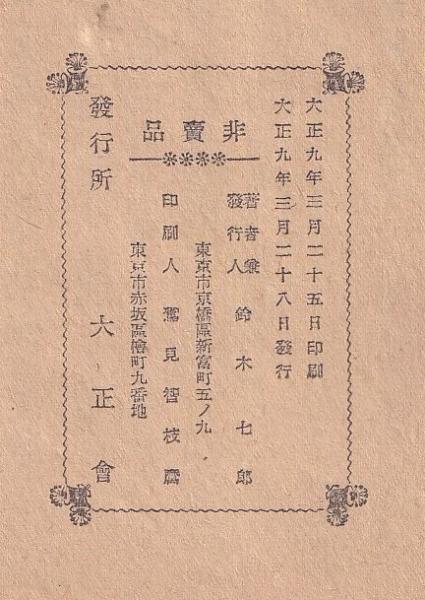 大正九年三月二十五日印刷
大正九年三月二十八日發行
非賣品
著者兼
發行人 鈴木七郎
東京市京橋區新富町五ノ九
印刷人 鷲見智枝麿
東京市赤坂區檜町九番地
發行所 大正會